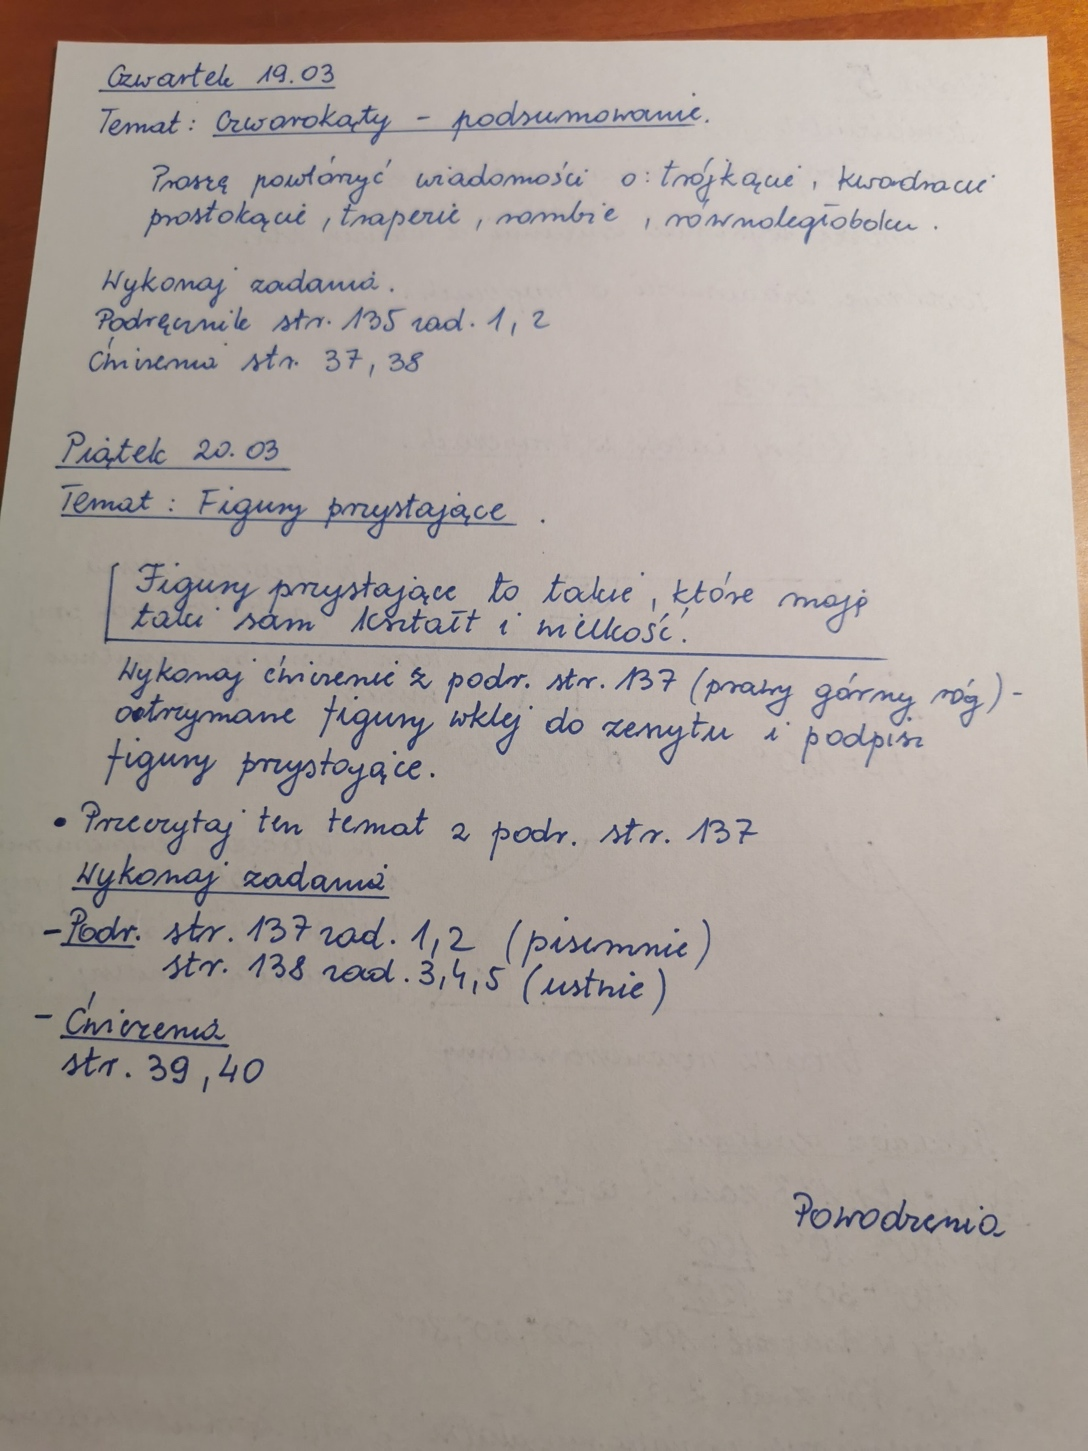 Czwartek 19.03
Temat: Czworokąty - podsumowanie.
Proszę powtórzyć wiadomości o: trójkącie, kwadracie
prostokącie, trapezie, rombie, równoległoboku.
Wykonaj zadania.
Podręcznik str. 135 zad. 1, 2
Ćwiczenia str. 37, 38
Piątek 20.03
Temat: Figury przystające.
Figury przystające to takie, które mają
taki sam kształt i wielkość.
Wykonaj ćwiczenie z podr. str. 137 (prawy górny róg) -
otrzymane figury wklej do zeszytu i podpisz
figury przystające.
• Przeczytaj ten temat z podr. str. 137
Wykonaj zadania
- Podr. str. 137 zad. 1,2 (pisemnie)
str. 138 zad. 3,4,5 (ustnie)
- Ćwiczenia
str. 39, 40
Powodzenia